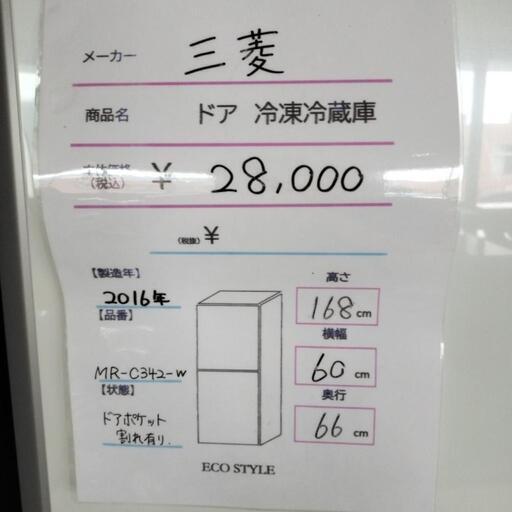 メーカー 三菱
商品名 ドア 冷凍冷蔵庫
本体価格
(税込) ¥ 28,000
(税抜) ¥
【製造年】
2016年
【品番】
MR-C342-W
【状態】
ドアポケット
割れ有り.
高さ
168cm
横幅
60cm
奥行
66cm
ECO STYLE